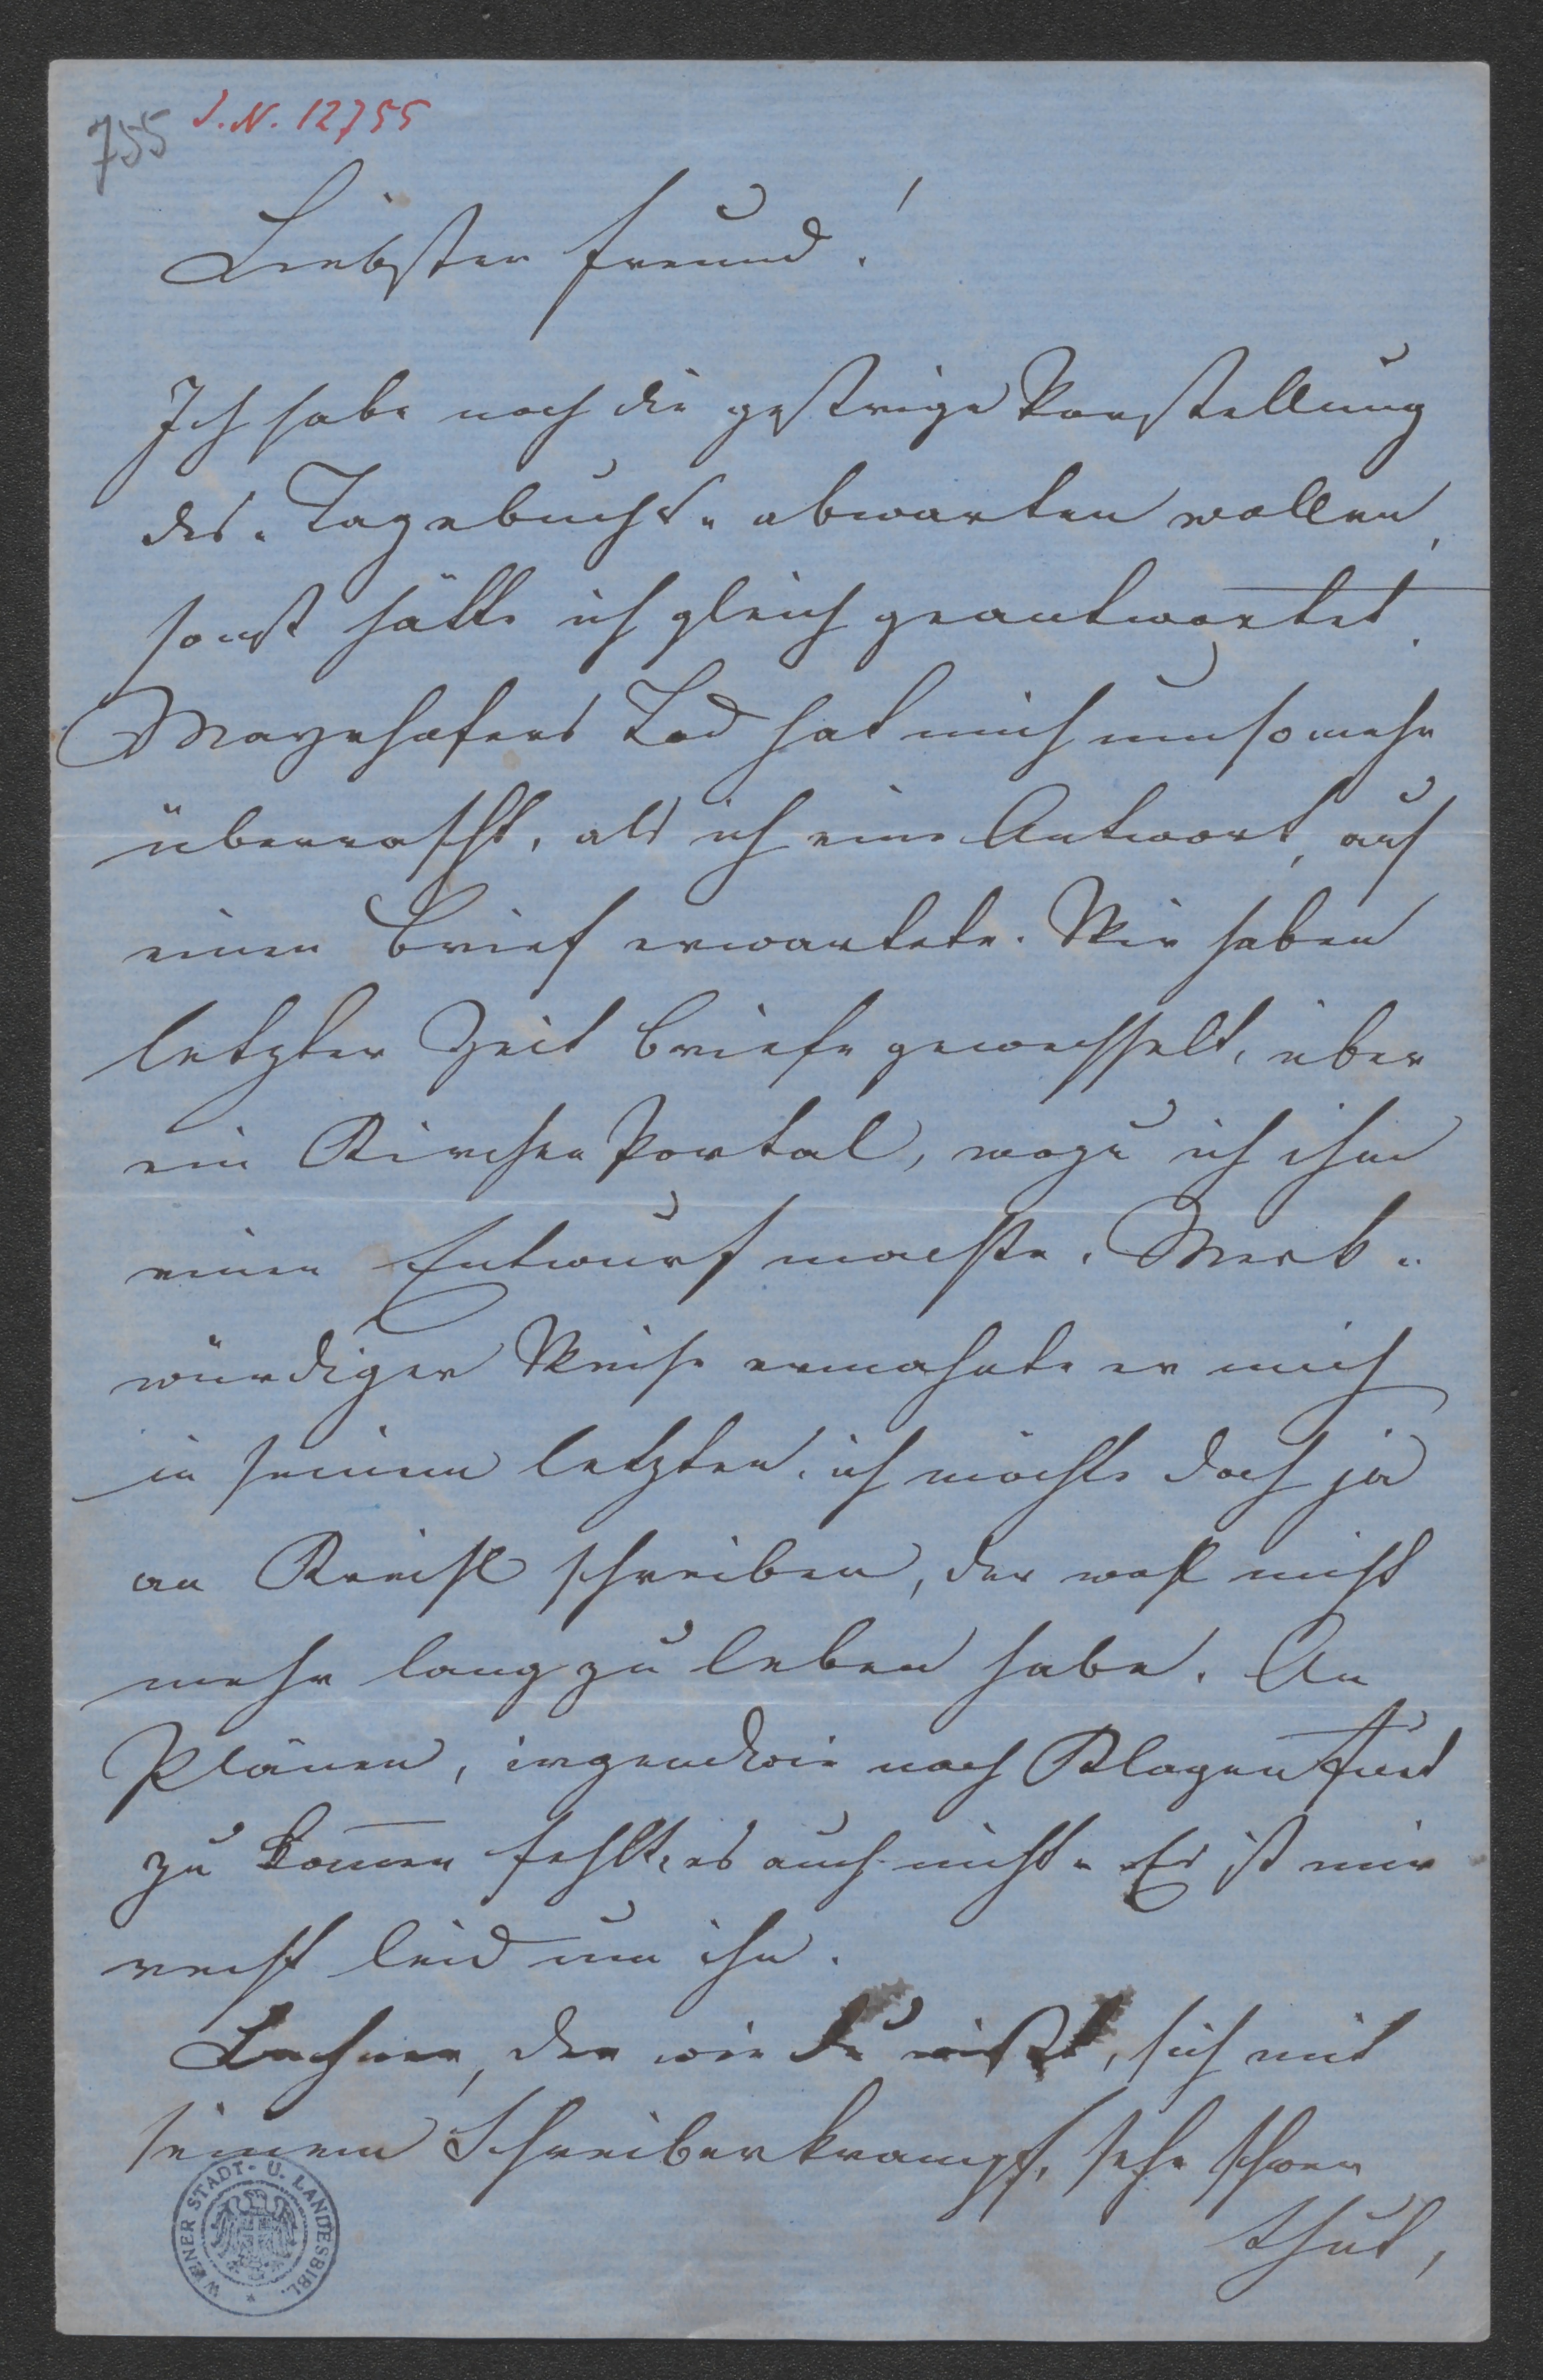 755 I.N. 12755
Liebster Freund!
Ich habe noch die gestrige Vorstellung
des „Tagebuchs" abwarten wollen,
sonst hätte ich gleich geantwortet.
Mayrhofers Tod hat mich umsomehr
überrascht, als ich eine Antwort, auf
einen Brief erwartete. Wir haben
letzter Zeit Briefe gewechselt, über
ein Kirchen Portal, wozu ich ihm
einen Entwurf machte. Merk-
würdiger Weise ermahnte er mich
in seinem letzten, ich möchte doch ja
an schreiben, der wohl nicht
mehr lang zu leben habe. An
Plänen, irgendwie nach Klagenfurt
zu kom̅en fehlt, es auch nicht. Es ist mir
recht leid um ihn.
der wie Du weißt, sich mit
seinem Schreiberkrampf, sehr schwer
thut,
WIENER STADT- U. LANDESBIBL.